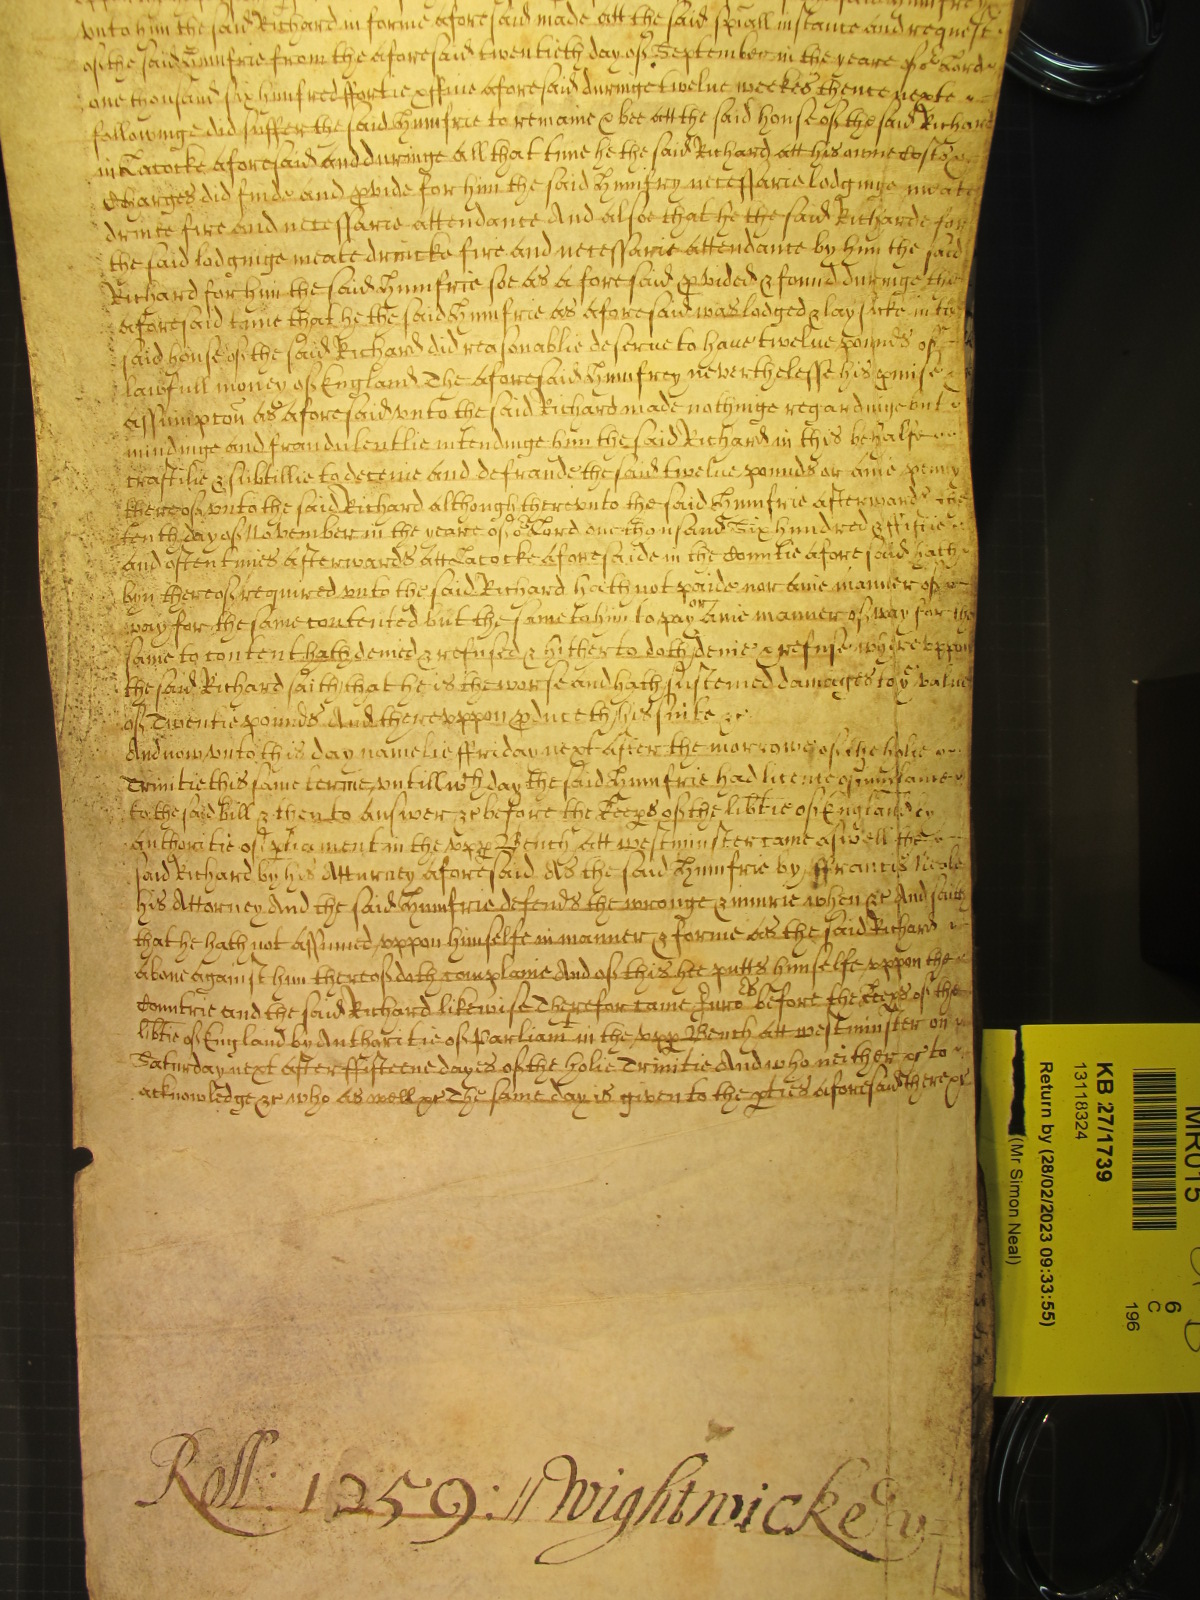 vnto him the said Richard in forme aforesaid made att the said spiall instance and request
of the said Humfrie from the aforesaid twentieth day of September in the yeare of or Lord
one thousand six hundred ffortie & ffiue aforesaid duringe twelue weekes thence nexte
followinge did suffer the said Humfrie to remaine & bee att the said house of the said Richard
in Lacocke aforesaid and duringe all that time he the said Richard att his owne Costs &
Charges did finde and pvide for him the said Humfry necessarie lodginge meate
drincke fire and necessarie attendance And alsoe that he the said Richarde for
the said lodginge meate drincke fire and necessarie attendance by him the said
Richard for him the said Humfrie soe as aforesaid pvided & found duringe the
aforesaid time that he the said Humfrie as aforesaid was lodged & lay sicke in the
said house of the said Richard did reasonablie deserue to haue twelue pounds of
lawfull money of England The aforesaid Humfrey neverthelesse his pmise
assumpcon as aforesaid vnto the said Richard made nothinge regardinge but
mindinge and fraudulentlie intendinge him the said Richard in this behalfe
craftilie & subtillie to deceiue and defraude the said twelue pounds or anie penny
thereof vnto the said Richard although therevnto the said Humfrie afterwards the
tenth day of November in the yeare of or Lord one thousand Six hundred & ffiftie
and oftentimes afterwards att Lacocke aforesaide in the Countie aforesaid hath
byn thereof required vnto the said Richard hath not paide nor anie manner of
way for the same contented but the same to him to pay or anie manner of way for the
same to content hath denied & refused & hitherto doth denie & refuse whervppon
the said Richard saith that he is the worse and hath susteined damages to ye value
of Twentie pounds And therevppon pduceth his suite &c
And now vnto this day namelie ffriday next after the morrowe of the holie
Trinitie this same terme, vntill wch day the said Humfrie had licence of imparlance
to the said Bill & then to answer &c before the Keeps of the libtie of England by
authoritie of pliament in the vpp Bench att westminster came aswell the
said Richard by his Atturney aforesaid As the said Humfrie by ffrancis Neale
his Attorney And the said Humfrie defends the wronge & iniurie when &c And saith
that he hath not assumed vppon himselfe in manner & forme as the said Richard
aboue against him thereof doth complaine And of this hee putts himselfe vppon the
Countrie and the said Richard likewise Therefor came Juro rs before the Keeps of the
libtie of England by Authoritie of Parliamt in the vpp Bench att westminster on
Saturday next after ffifteene dayes of the holie Trinitie And who neither &c to
acknowledge &c who as well &c The same day is given to the pties aforesaid there &c
Roll: 1259: // Wightwicke
MR015
KB 27/1739
13118324
Return by (28/02/2023 09:33:55)
(Mr Simon Neal)
6
C
196